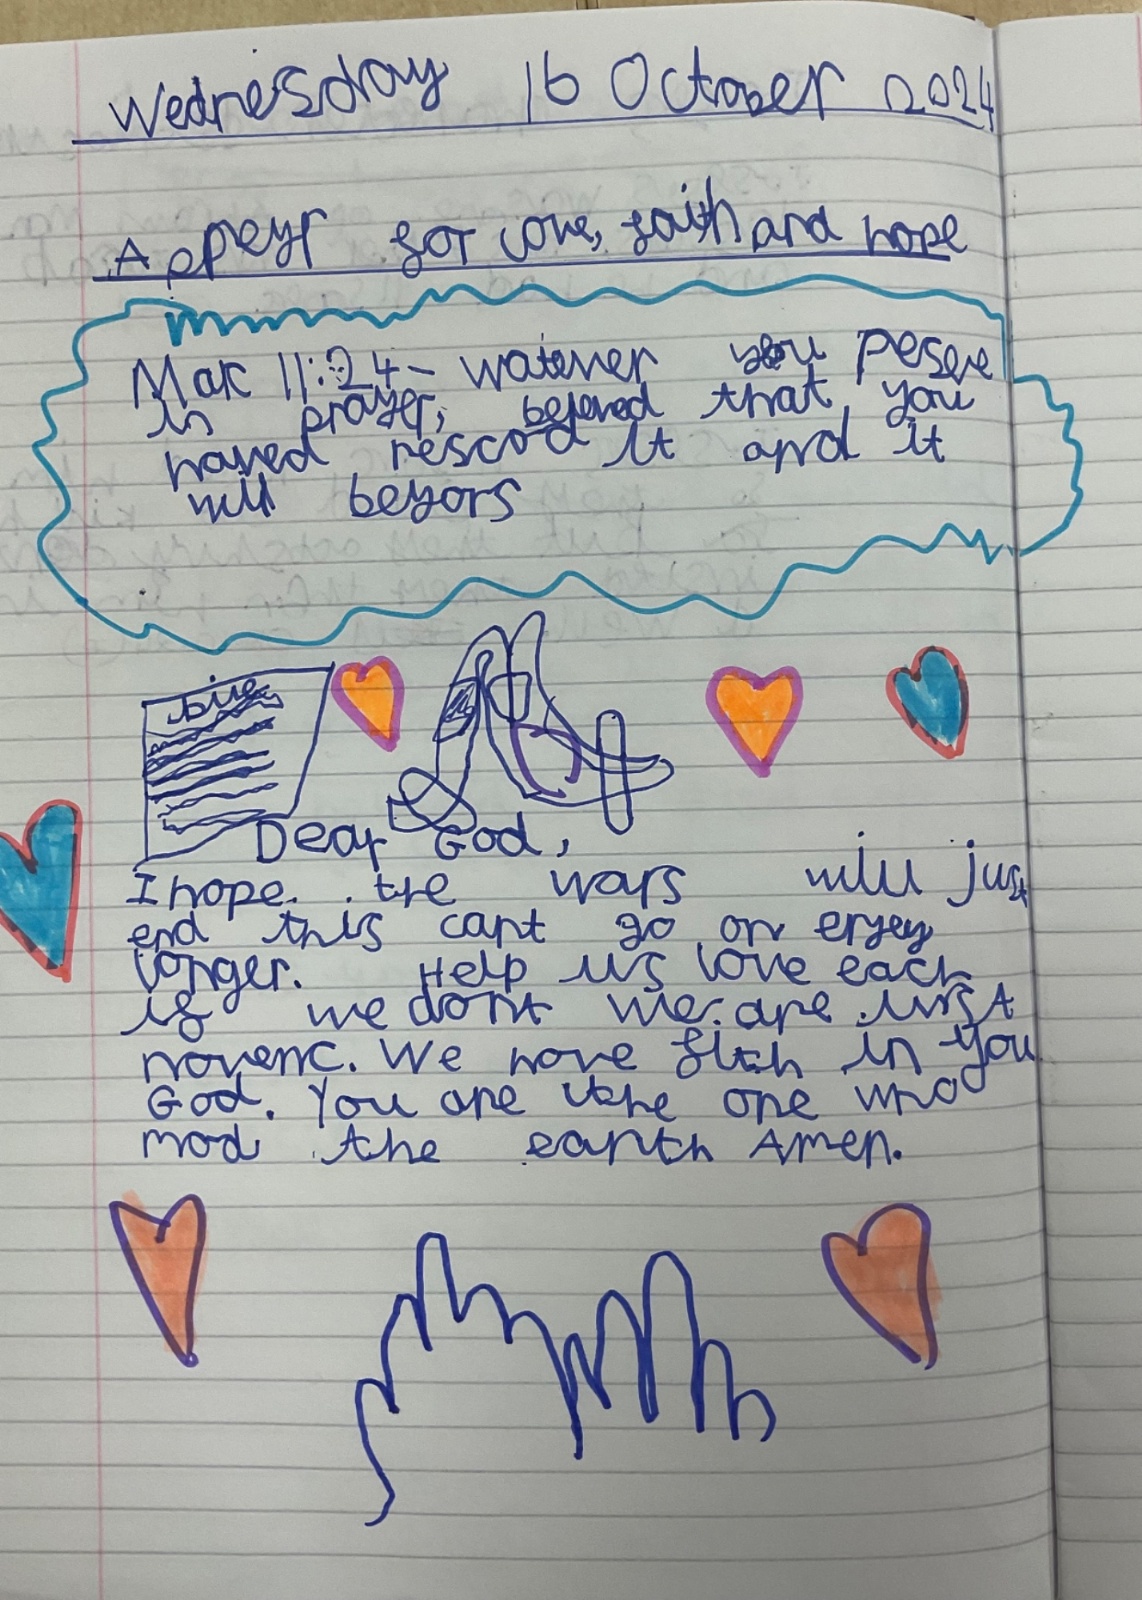 Wednesday 16 October 2024
A ppeyr for love, faith and hope
Mark 11:24- watever you pesere
in prayer, befeved that you
haved rescod it and it
will beyors
Dear God,
I hope the wars will just
end this cant go on enjey
longer. Help us love each
if we dont we are just
novenc. We have fith in you
God. You are the one who
mad the earth Amen.